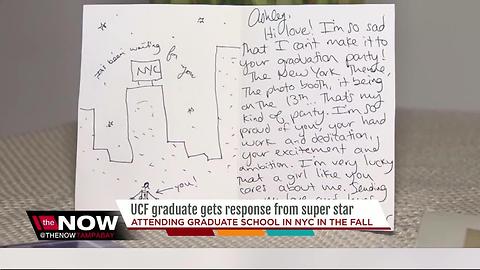 It's been waiting
for
you
NYC
you!
Ashley,
Hi love! I'm so sad
that I can't make it to
your graduation party!
The New York Theme,
The photo booth, it being
on the 13th... That's my
kind of party. I'm so
proud of you, your hard
work and deditation,
your excitement and
ambition. I'm very lucky
that a girl like you
cares about me. Sending
love and
UCF graduate gets response from super star
ATTENDING GRADUATE SCHOOL IN NYC IN THE FALL
the NOW
@THENOWTAMPABAY